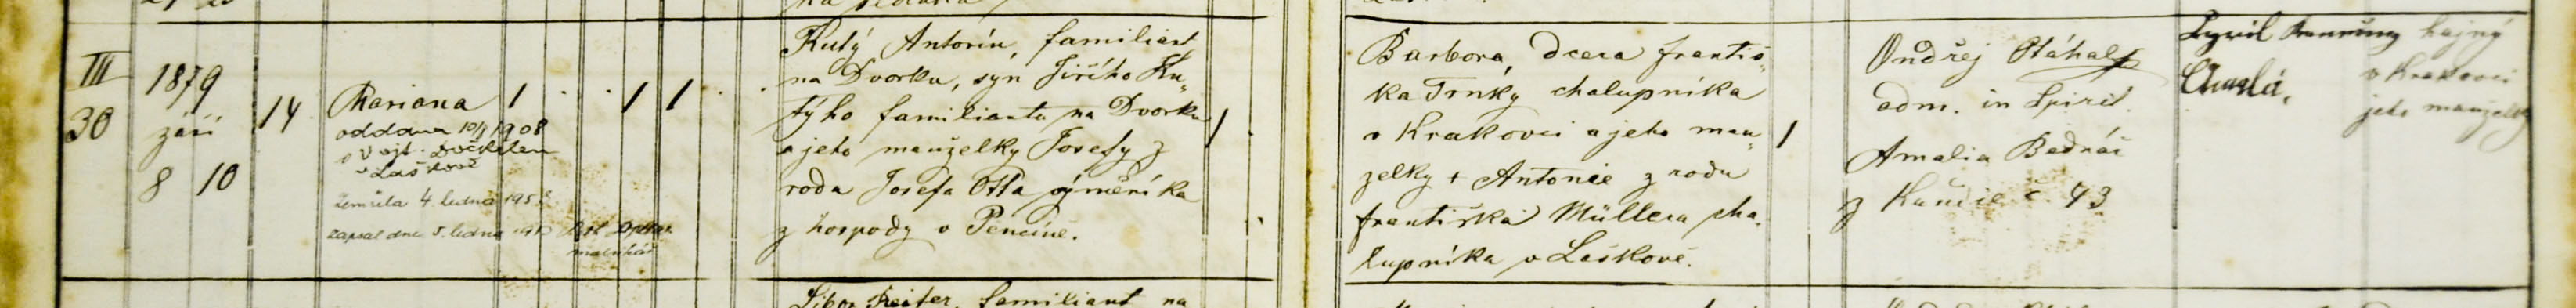 III
30
1879
září
8 10
14
Mariana 1 1 1
oddána 10/8 1908
s Vojt.
v Laškově
zemřela 4. ledna 195
zapsal dne 5. ledna
matrikář
Kutý Antonín, familiant
na Dvorku, syn Jiřího Ku„
týho familianta na Dvorku
a jeho manželky Josefy z
roda Josefa Otta výměníka
z hospody v Pěnčíně.
1
Barbora, dcera Františ„
ka Trnky chalupníka
v Krakovci a jeho man„
zelky + Antonie z rodu
Františka Müllera cha„
lupníka v Laškově.
1
Ondřej Otáhal
adm. in Spirit.
Amalia Bednář
z č. 43
Cyril hajný
v Krakovci
jeho manželka